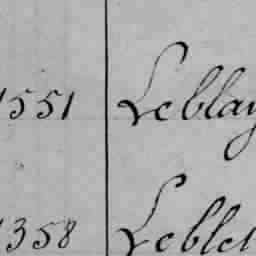 1551 Leblay
1358 Leblet